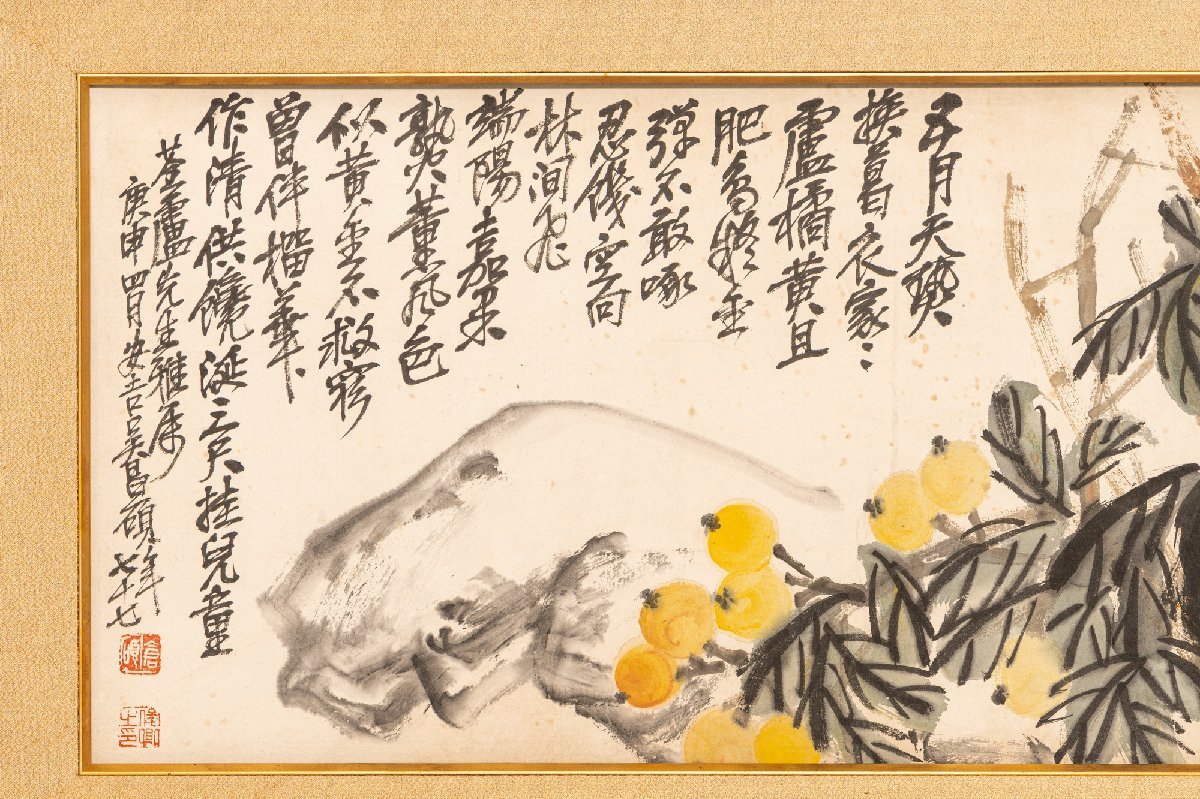 五月天熱
換葛衣家〻
盧橘黃且
肥鳥疑金
彈不敢啄
忍饑空向
林間飛
端陽嘉果
熟薰風色
似黃金不救窮
曾伴榴華
作清供饞涎三尺挂兒童
荃盧先生雅屬
庚申四月安吉吳昌碩年七十七
倉碩
俊卿之印